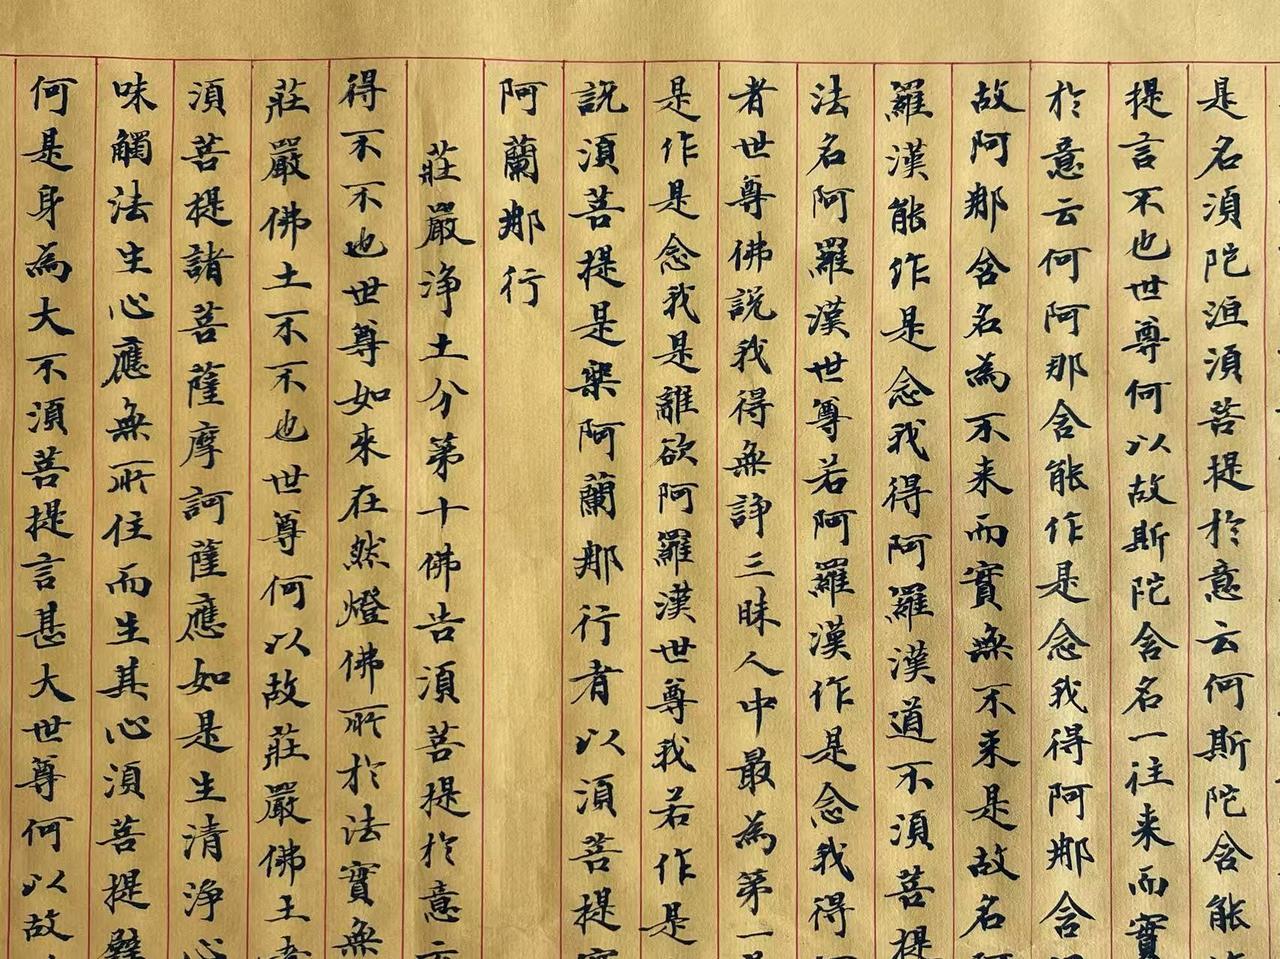 是名須陀洹須菩提於意云何斯陀含能
提言不也世尊何以故斯陀含名一往来而實
於意云何阿那含能作是念我得阿那含
故阿那含名為不来而實無不来是故名
羅漢能作是念我得阿羅漢道不須菩提
法名阿羅漢世尊若阿羅漢作是念我得
者世尊佛説我得無諍三昧人中最為第一
是作是念我是離欲阿羅漢世尊我若作是
説須菩提是樂阿蘭那行者以須菩提
阿蘭那行
莊嚴浄土分第十佛告須菩提於意云
得不不也世尊如来在然燈佛所於法實無
莊嚴佛土不不也世尊何以故莊嚴佛土者
須菩提諸菩薩摩訶薩應如是生清浄心
味觸法生心應無所住而生其心須菩提譬
何是身為大不須菩提言甚大世尊何以故